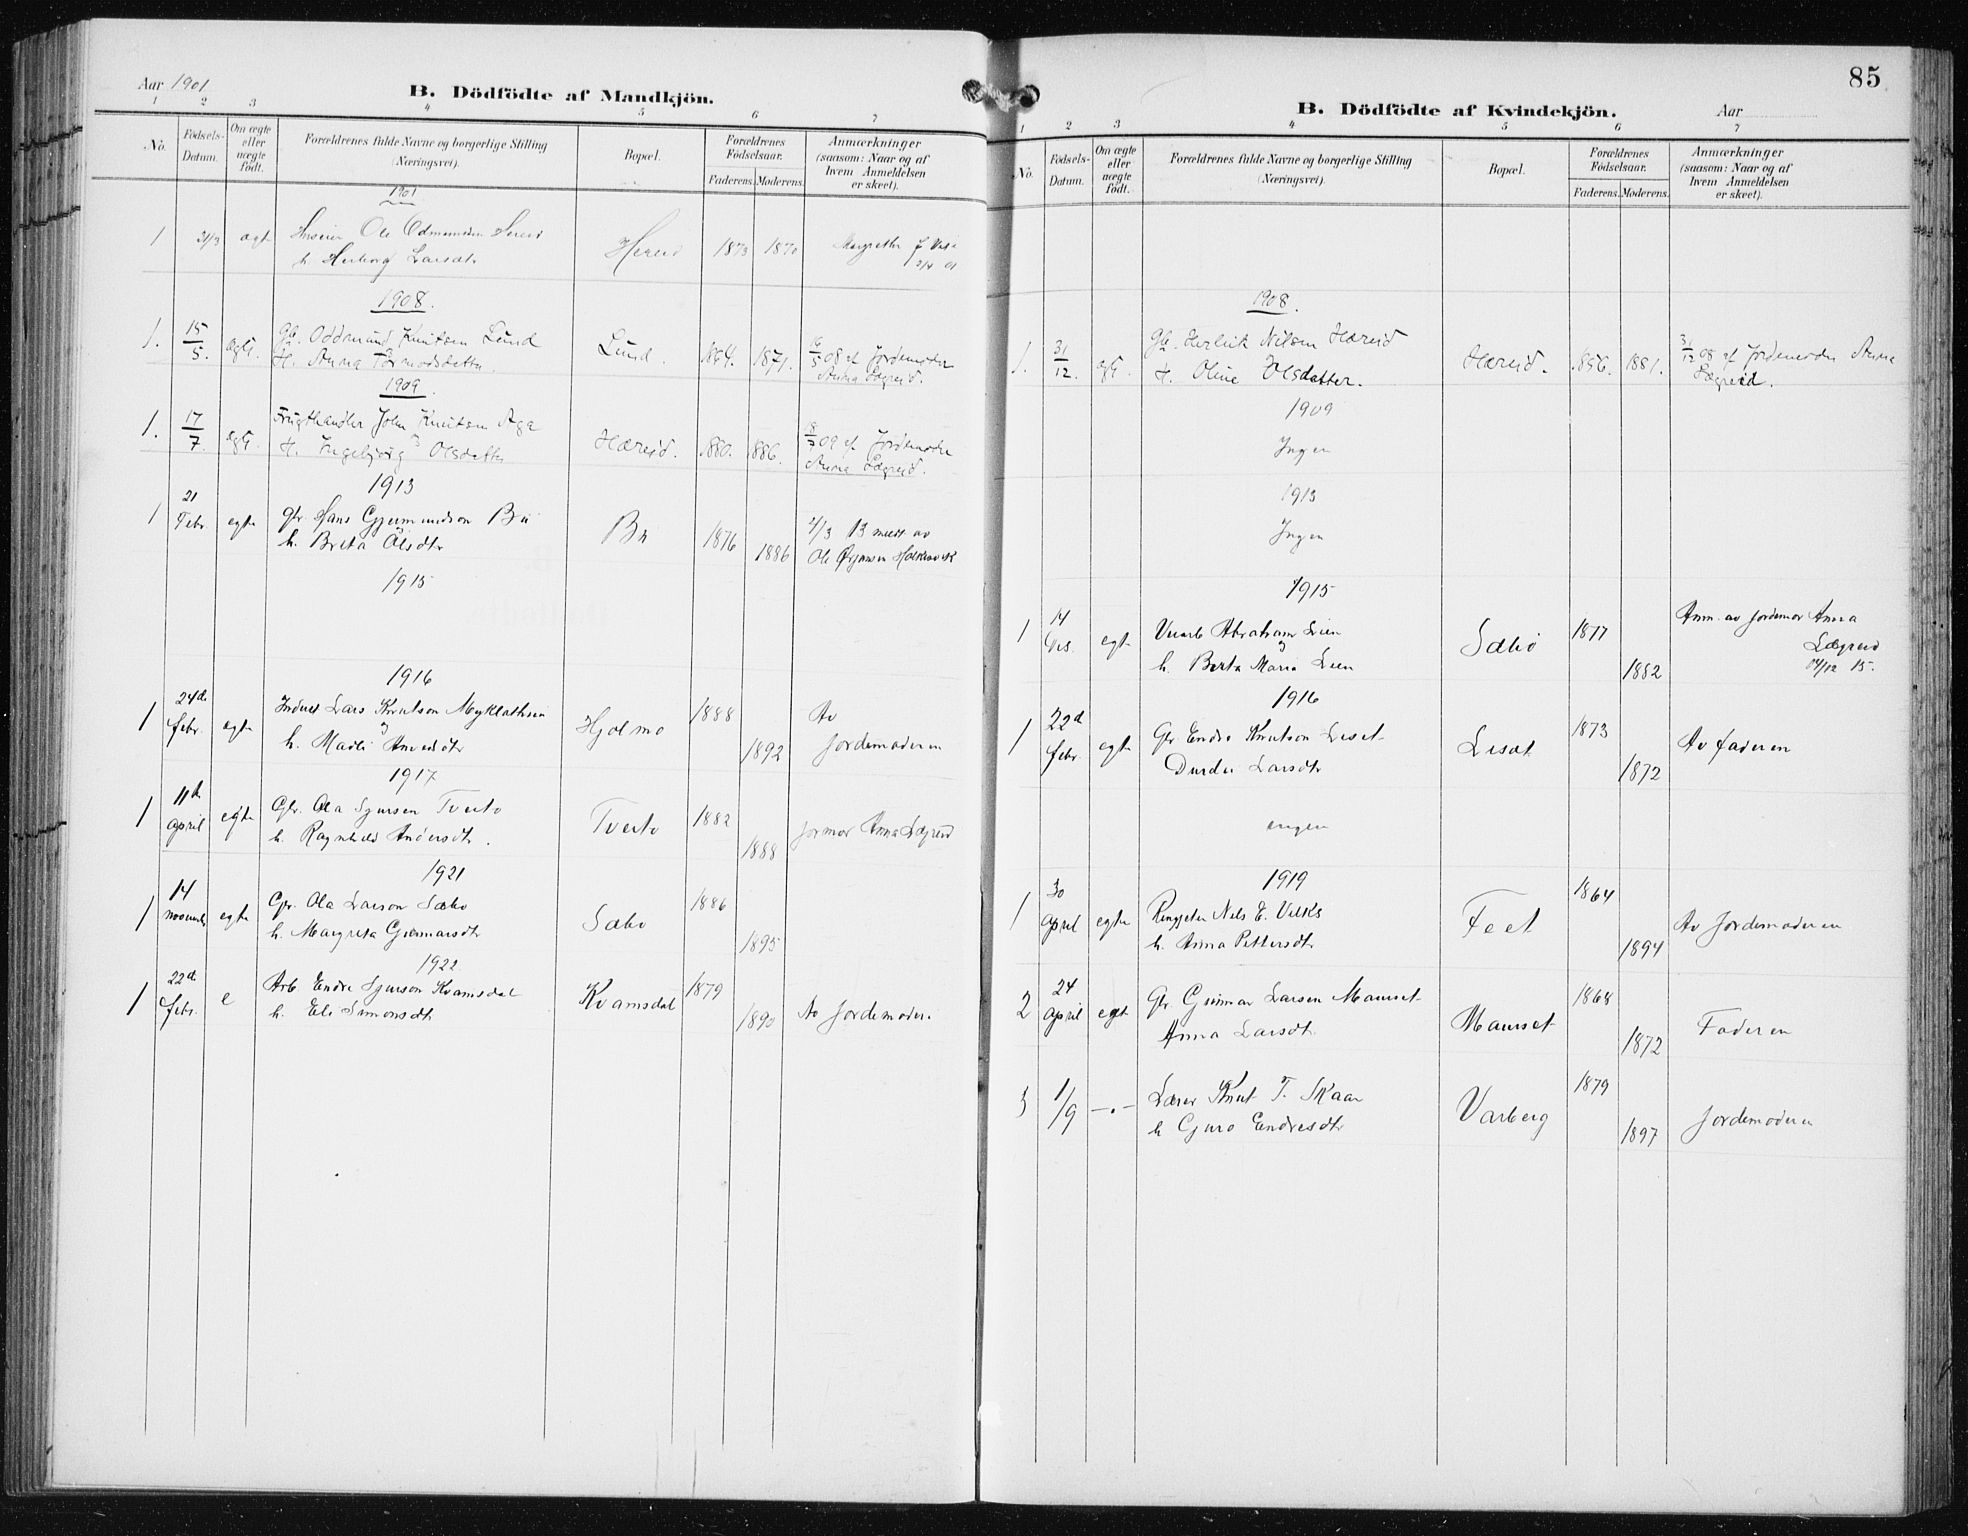 Aar 1901
B. Dödfödte af Mandkjön.
1 2 3 4 5 6 7
No.
Fødsels-
Datum.
Om ægte
eller
uægte
født.
Forældrenes fulde Navne og borgerlige Stilling
(Næringsvei).
Bopæl.
Forældrenes
Fødselsaar.
Faderens. Moderens.
Anmærkninger
(saasom: Naar og af
hvem Anmeldelsen
er skeet).
1901
1 31/3 ægt Ole Odmundsen Hereid
h. Herborg Larsdtr Hereid 1873 1870
2/4 01
1908.
1. 15/5. ægt. Gb. Oddmund Knutsen Lund
H. Anna Tormodsdatter. Lund. 1864. 1871. 16/5 08 af Jordemoder
Anna Lægreid.
1909
1. 17/7. ægt. Frugthandler John Knutsen Aga
H. Ingebjørg Olsdatter Hæreid. 1880. 1886. 18/7 09 af Jordemoder
Anna Lægreid.
1913
1 21 Febr egte gbr. Hans Gjermundson Bu
h. Brita Olsdtr Bu 1876 1886 4/3 13 meldt av
Ole Ørjansen Holkesvik
1915
1916
1 24de febr. egte Lars Knutson Myklathun
h. Hjølmo 1888 1892 Av
Jordemoderen
1917
1 11te april egte Gbr. Ola Sjursen Tveito
h. Ragnhild Andersdtr. Tveito 1882 1888 Jormor Anna Lægreid
1921
1 14 novemb egte Gbr. Ola Larson Sæbø
h. Margreta Gunnarsdtr Sæbø 1886 1895
1922.
1 22de febr. e Arb Endre Sjurson Kvamsdal
h. Eli Simonsdtr Kvamsdal 1879 1890 Av Jordemoder.
85
B. Dödfödte af Kvindekjön.
Aar
1 2 3 4 5 6 7
No.
Fødsels-
Datum.
Om ægte
eller
uægte
født.
Forældrenes fulde Navne og borgerlige Stilling
(Næringsvei).
Bopæl.
Forældrenes
Fødselsaar.
Faderens. Moderens.
Anmærkninger
(saasom: Naar og af
hvem Anmeldelsen
er skeet).
1908.
1. 31/12. ægt. Gb. Herleik Nilsen Hæreid
H. Oline Olsdatter. Hæreid. 1856. 1881. 31/12 08 af Jordemoder Anna
Lægreid.
1909
Ingen
1913
Ingen
1915
1 14 Des. egte Abraham Lien
h. Berta Maria Lien Sæbø 1877 1882 Anm. av Jordemor Anna
Lægreid
14/12 15.
1916
1 22d febr. egte Gbr Endre Knutson Liset
Durdei Larsdtr Lisæt 1873 1872 Av faderen
engen
1919
1 30 april egte Nils E. Vilks
h. Anna Pettersdtr Feet 1864 1894 Av Jordemoderen
2 24 april egte Gbr. Gunnar Larsen Maurset
Anna Larsdtr Maurset 1868 1872 Faderen
3 1/9 —"— Lærer Knut T. Skaar
h Guro Endresdtr Varberg 1879 1897 Jordemoderen